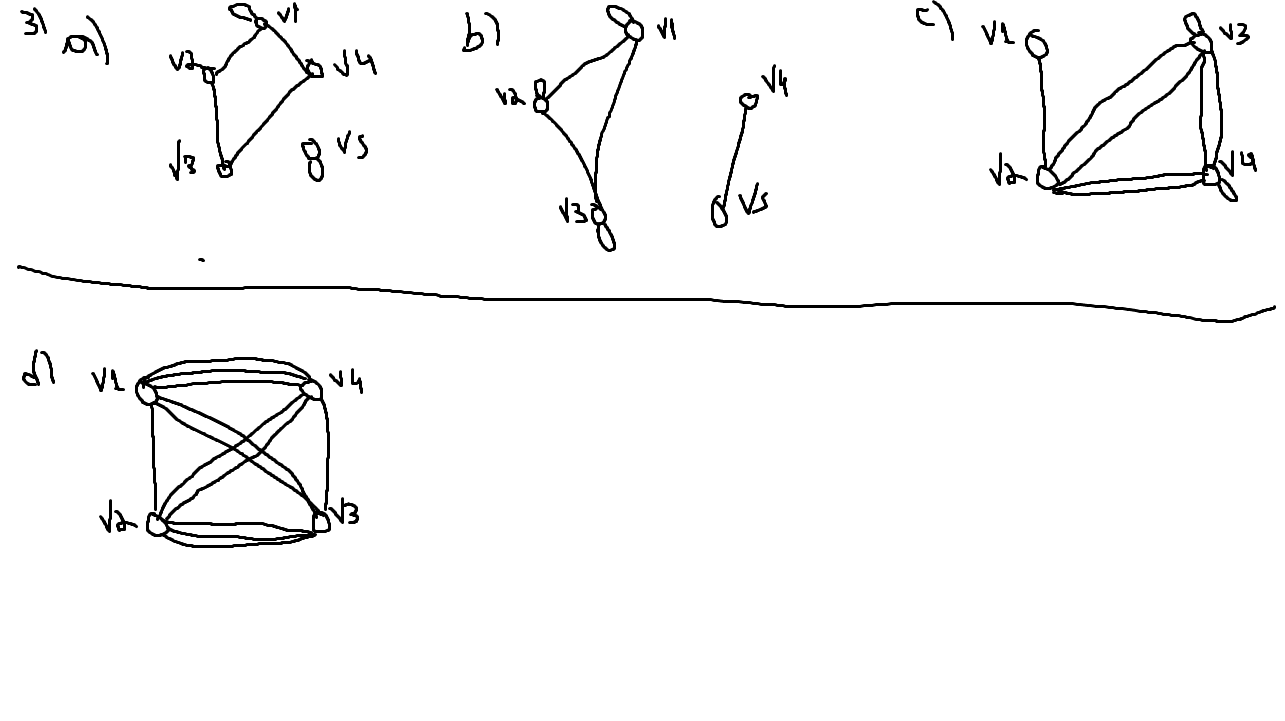 3) a) v1
v2 v4
v3 v5
b) v1
v2 v4
v3 v5
c) v1 v3
v2 v4
d) v1 v4
v2 v3